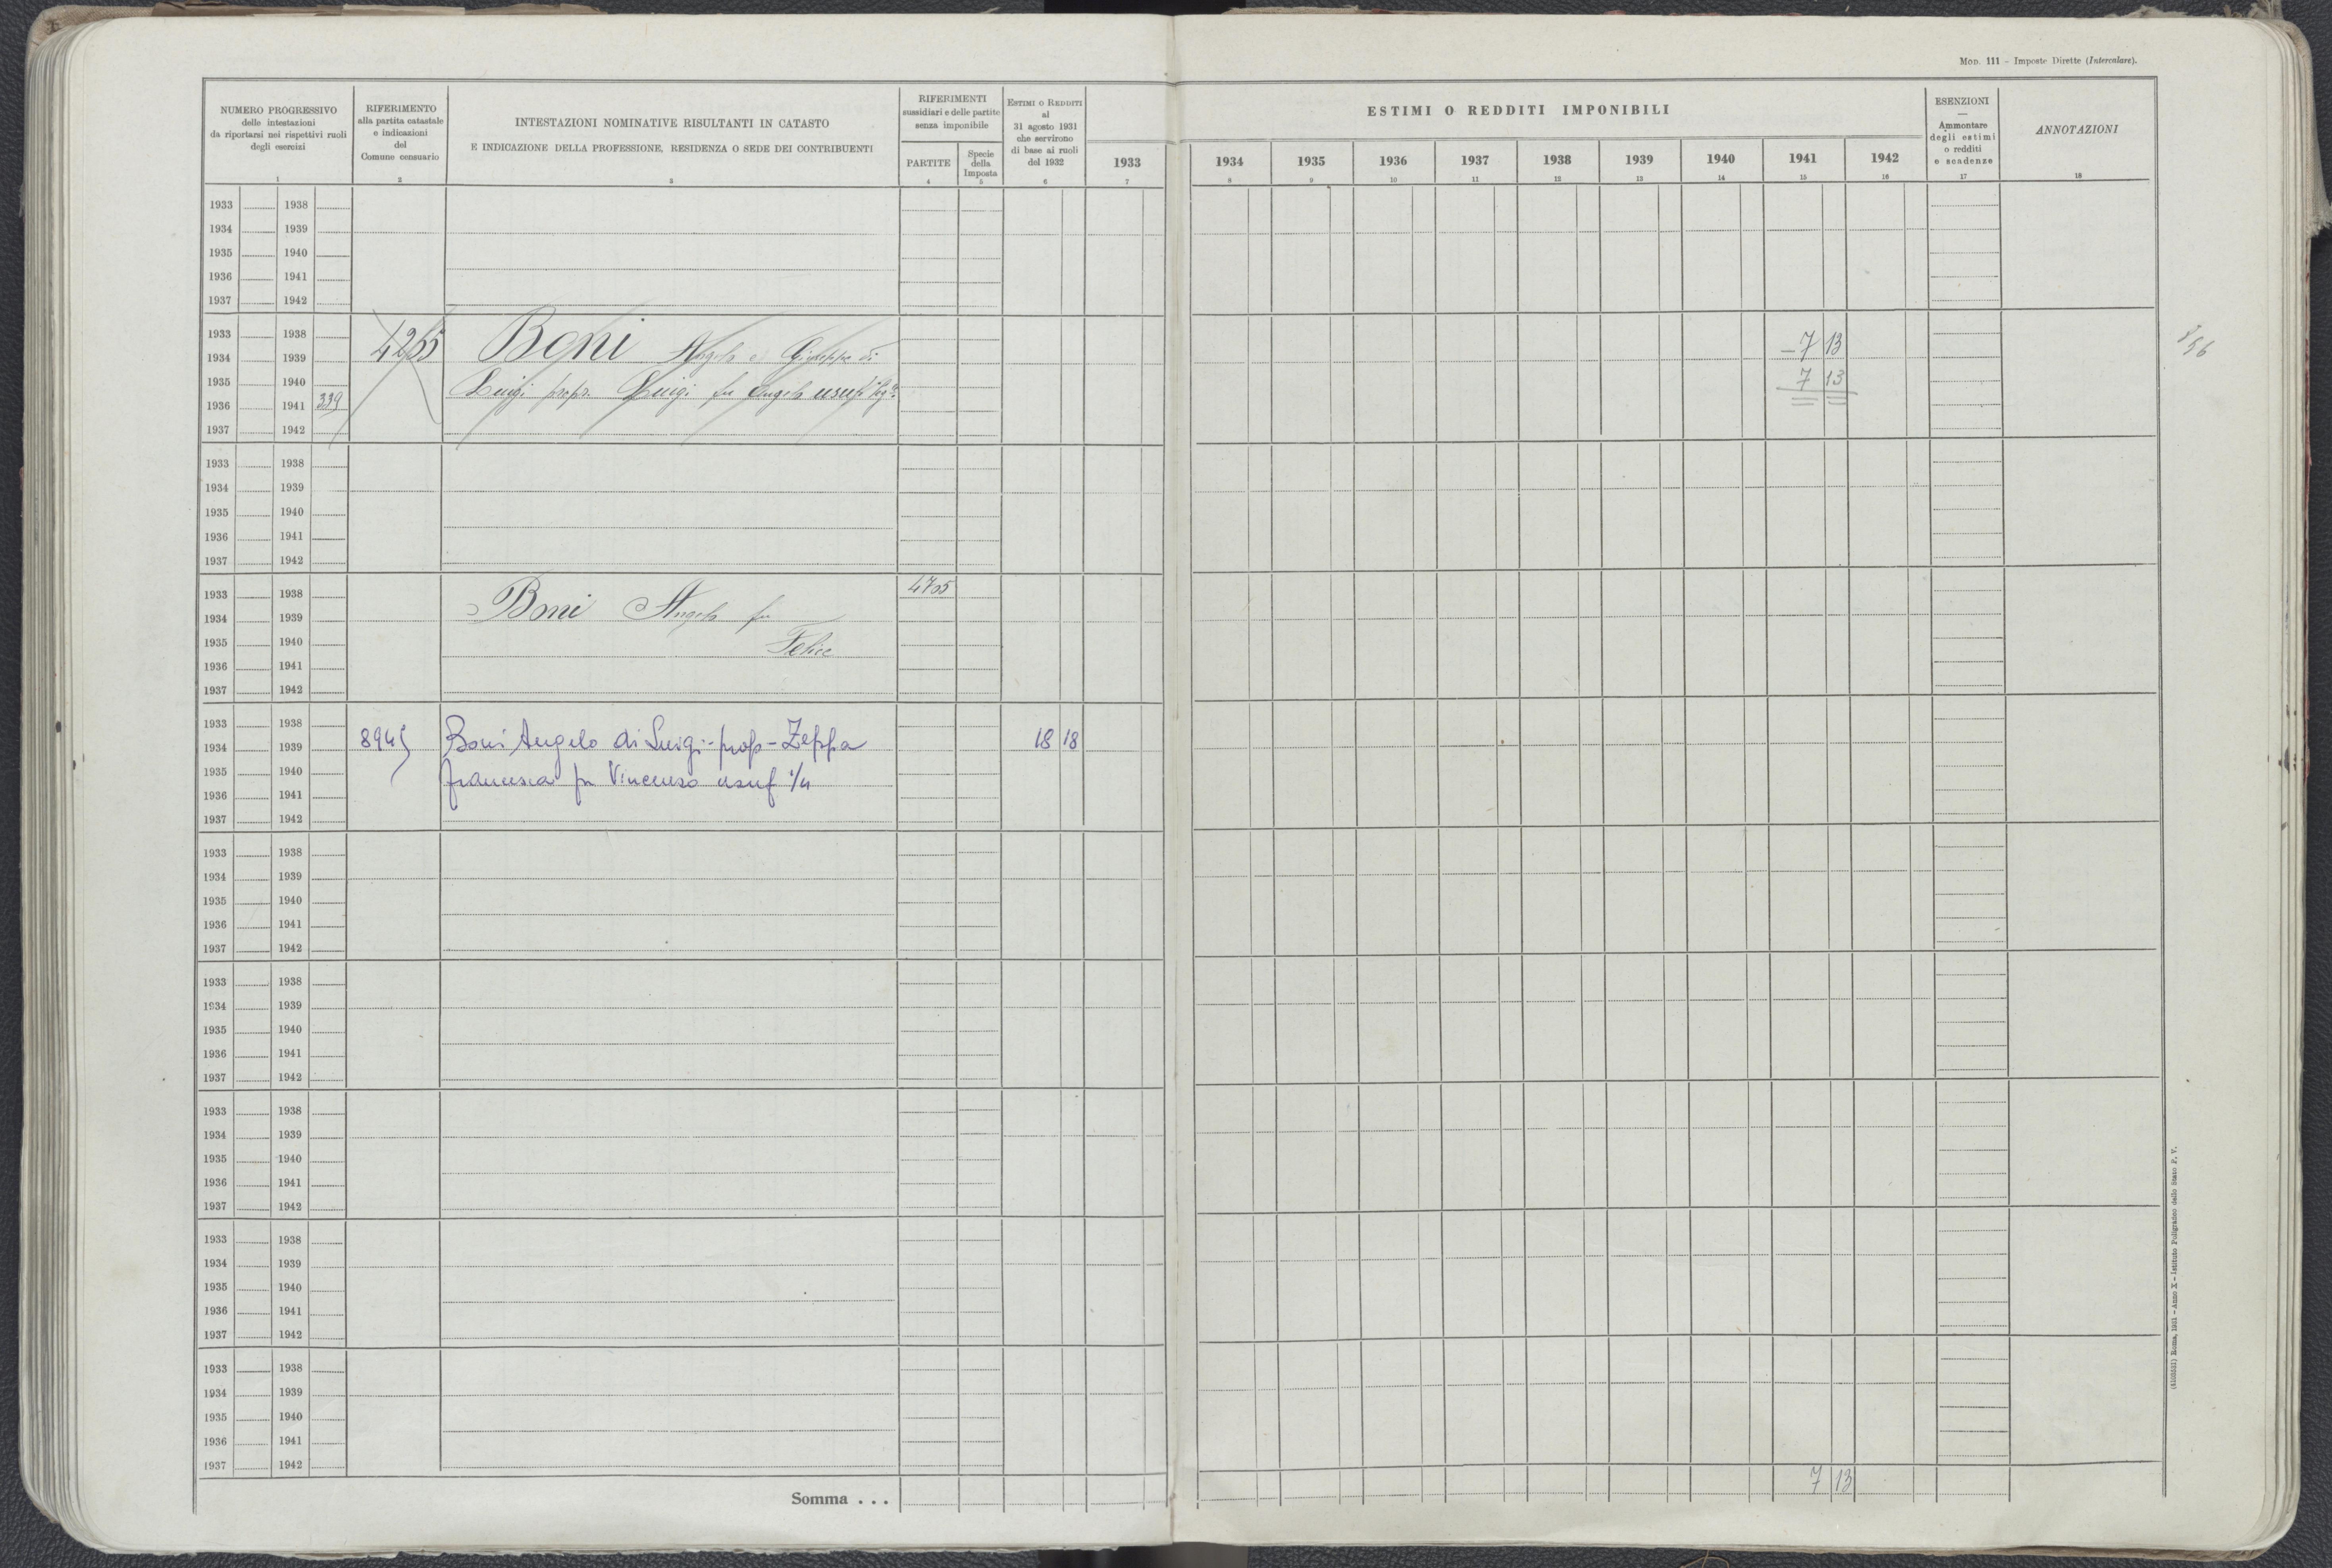 MOD. 111 – Imposte Dirette (Intercalare).
NUMERO PROGRESSIVO
delle intestazioni
da riportarsi nei rispettivi ruoli
degli esercizi
1
RIFERIMENTO
alla partita catastale
e indicazioni
del
Comune censuario
2
INTESTAZIONI NOMINATIVE RISULTANTI IN CATASTO
E INDICAZIONE DELLA PROFESSIONE, RESIDENZA O SEDE DEI CONTRIBUENTI
3
RIFERIMENTI
sussidiari e delle partite
senza imponibile
PARTITE
4
Specie
della
Imposta
5
ESTIMI O REDDITI
al
31 agosto 1931
che servirono
di base ai ruoli
del 1932
6
ESTIMI O REDDITI IMPONIBILI
1933 1934 1935 1936 1937 1938 1939 1940 1941 1942
7 8 9 10 11 12 13 14 15 16
ESENZIONI
—
Ammontare
degli estimi
o redditi
e scadenze
17
ANNOTAZIONI
18
1933 1938
1934 1939
1935 1940
1936 1941
1937 1942
1933 1938
1934 1939
1935 1940
1936 1941 339
1937 1942
4255 Boni Angelo e Giuseppe di
Luigi propr. Luigi fu Angelo usuf.
– 7 13
7 13
1933 1938
1934 1939
1935 1940
1936 1941
1937 1942
1933 1938
1934 1939
1935 1940
1936 1941
1937 1942
4705
Boni Angelo fu
Felice
1933 1938
1934 1939
1935 1940
1936 1941
1937 1942
8945 Boni Angelo di Luigi - prop - Zeppa 18 18
francesca fu Vincenzo usuf 1/4
1933 1938
1934 1939
1935 1940
1936 1941
1937 1942
1933 1938
1934 1939
1935 1940
1936 1941
1937 1942
1933 1938
1934 1939
1935 1940
1936 1941
1937 1942
1933 1938
1934 1939
1935 1940
1936 1941
1937 1942
1933 1938
1934 1939
1935 1940
1936 1941
1937 1942
Somma . . . 7 13
Roma, 1931 – Anno X – Istituto Poligrafico dello Stato P. V.